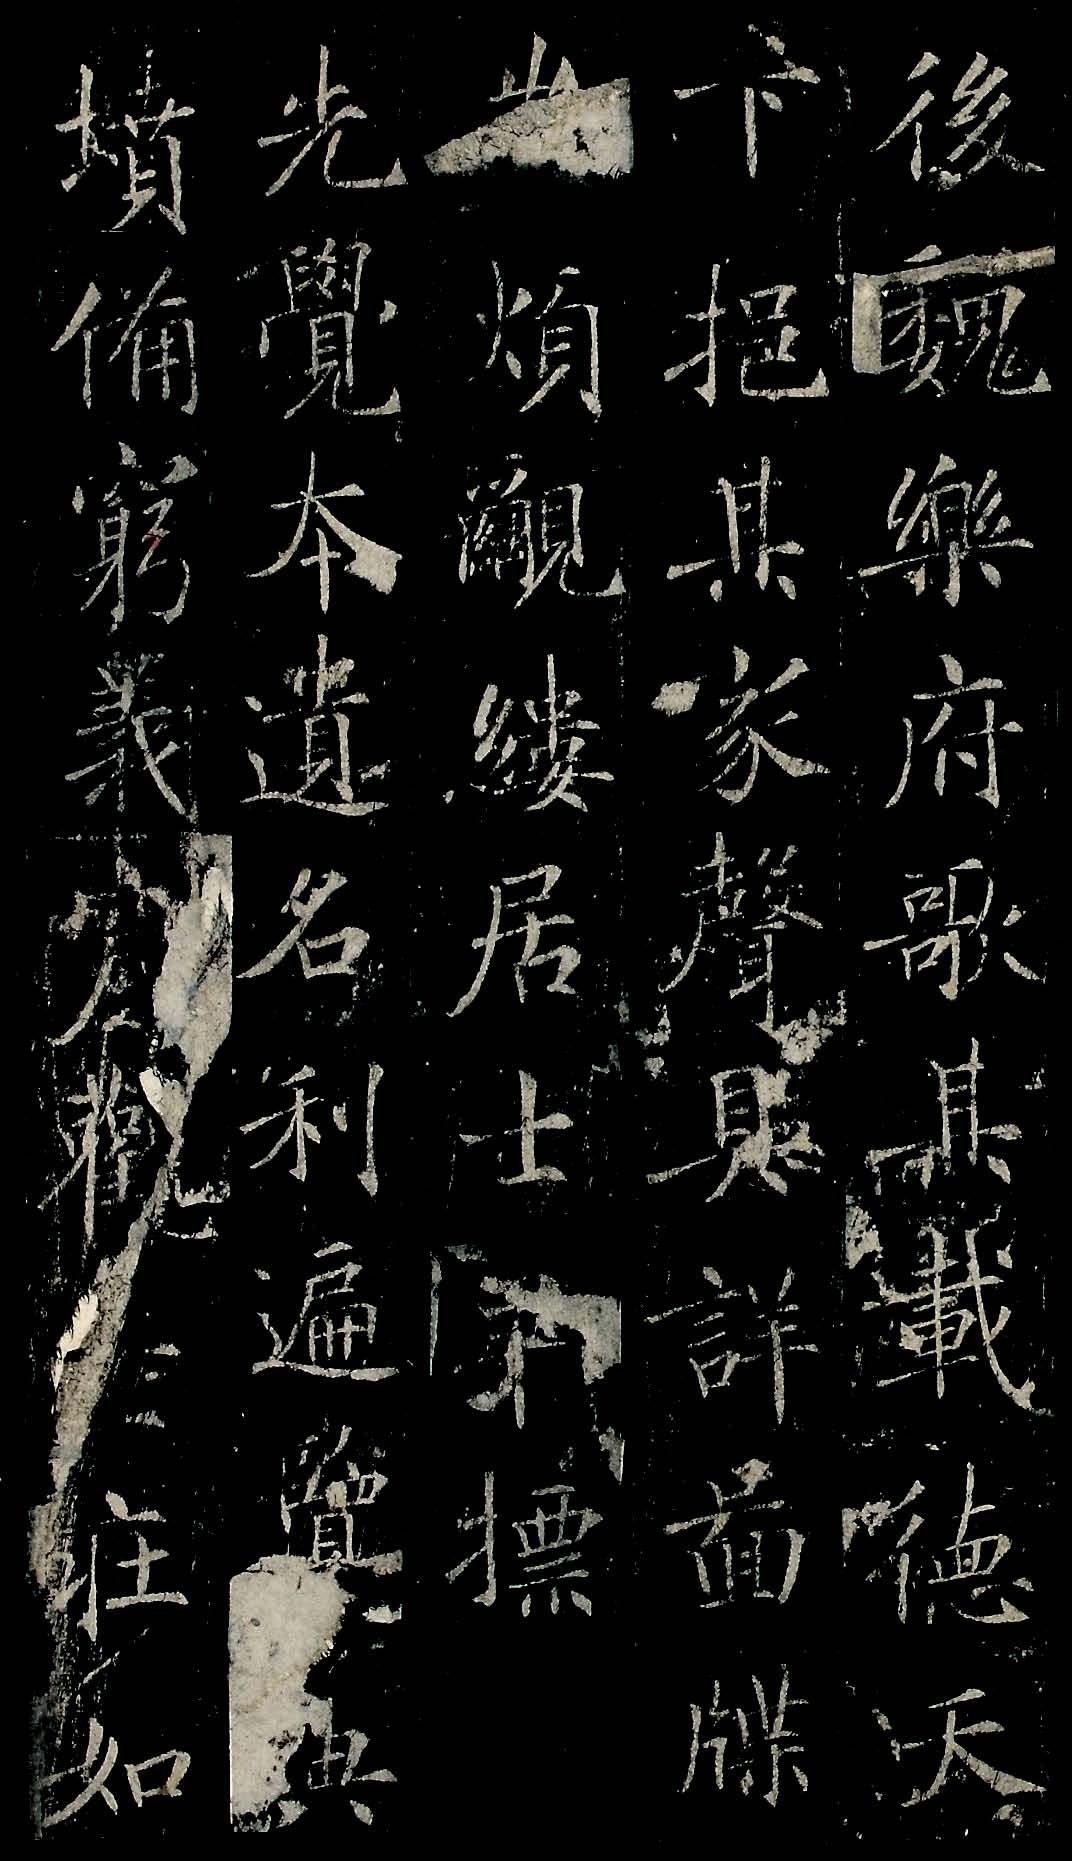 後魏樂府歌其載德天
下挹其家聲則詳啚牒
煩覶縷居士標
先覺本遺名利遍覽典
墳備窮義觀莊如